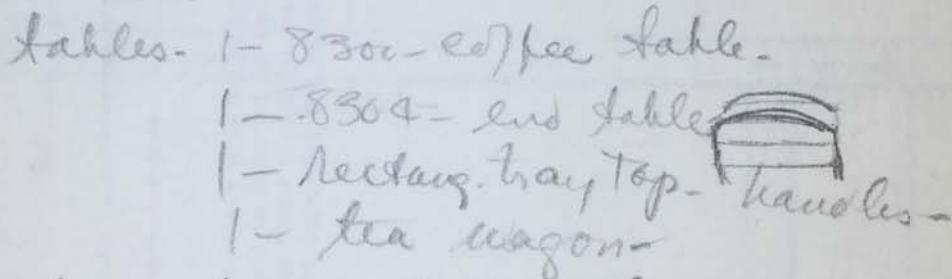 tables- 1- 8300- coffee table-
1- 8304- end table
1- rectang. tray Top- handles-
1- tea wagon-